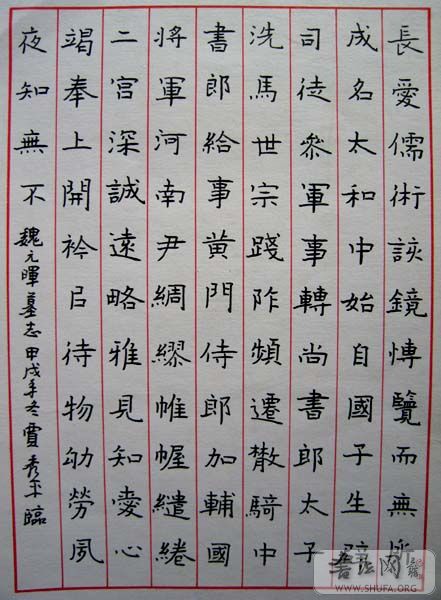 長愛儒術該鏡愽覽而無所
成名太和中始自國子生辟
司徒参軍事轉尚書郎太子
洗馬世宗踐阼頻遷散騎中
書郎給事黄門侍郎加輔國
將軍河南尹綢繆帷幄繾綣
二宮深誠遠略雅見知愛心
竭奉上開衿㠯待物劬勞夙
夜知無不
魏元暉墓志甲戌年冬賈秀平臨
書法网
WWW.SHUFA.ORG